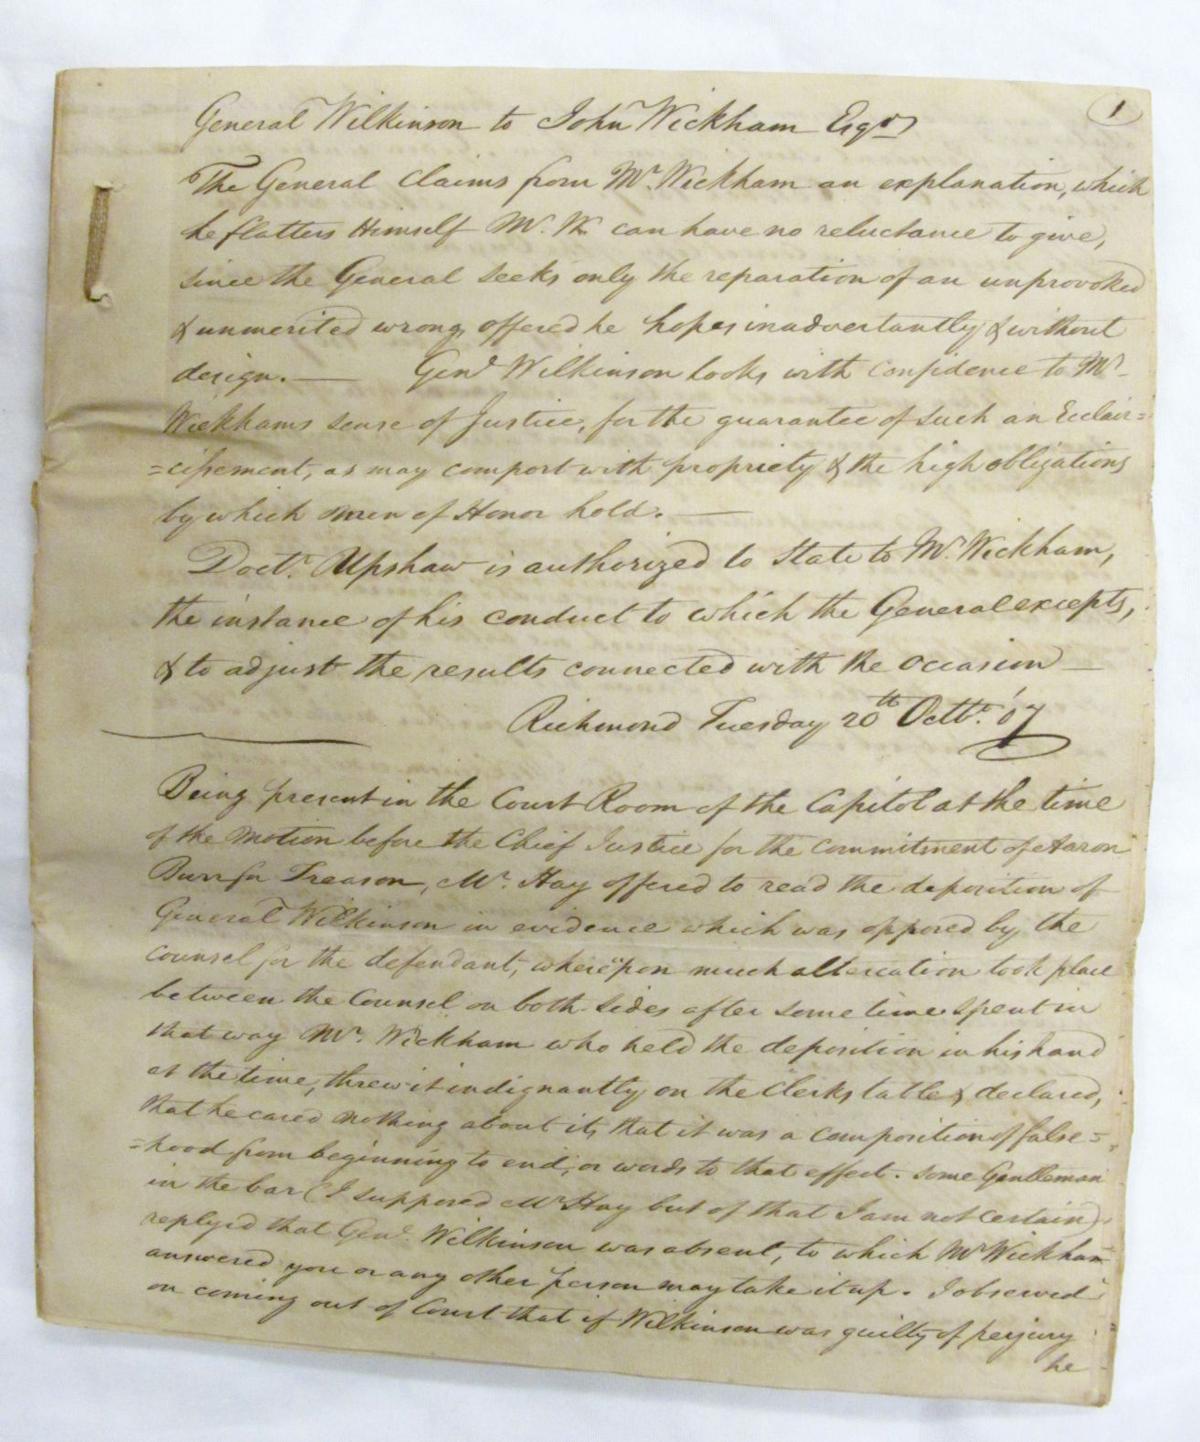 1
General Wilkinson to John Wickham Esqr
The General Claims from Mr. Wickham an explanation, which
he flatters Himself Mr. W. can have no reluctance to give,
since the General seeks only the reparation of an unprovoked
& unmerited wrong, offered he hopes inadvertantly & without
design. — Genl Wilkinson looks with confidence to Mr
Wickhams sense of Justice, for the guarantee of such an Ecclair=
=cissement, as may comport with propriety & the high obligations
by which men of Honor hold. —
Doctr. Upshaw is authorized to State to Mr. Wickham,
the instance of his conduct to which the General excepts,
& to adjust the results connected with the occasion —
Richmond Tuesday 20th Octbr. '07
Being present in the Court Room of the Capitol at the time
of the motion before the Chief Justice for the commitment of Aaron
Burr for Treason, Mr. Hay offered to read the deposition of
General Wilkinson in evidence which was opposed by the
counsel for the defendant, whereupon much altercation took place
between the Counsel on both sides after some time spent in
that way Mr. Wickham who held the deposition in his hand
at the time, threw it indignantly on the Clerks table & declared,
that he cared nothing about it, that it was a composition of false=
=hood from beginning to end, or words to that effect. some Gentleman
in the bar (I supposed Mr Hay but of that I am not certain)
replyed that Genl. Wilkinson was absent, to which Mr Wickham
answered you or any other person may take it up. I observed
on coming out of Court that if Wilkinson was guilty of perjury
he